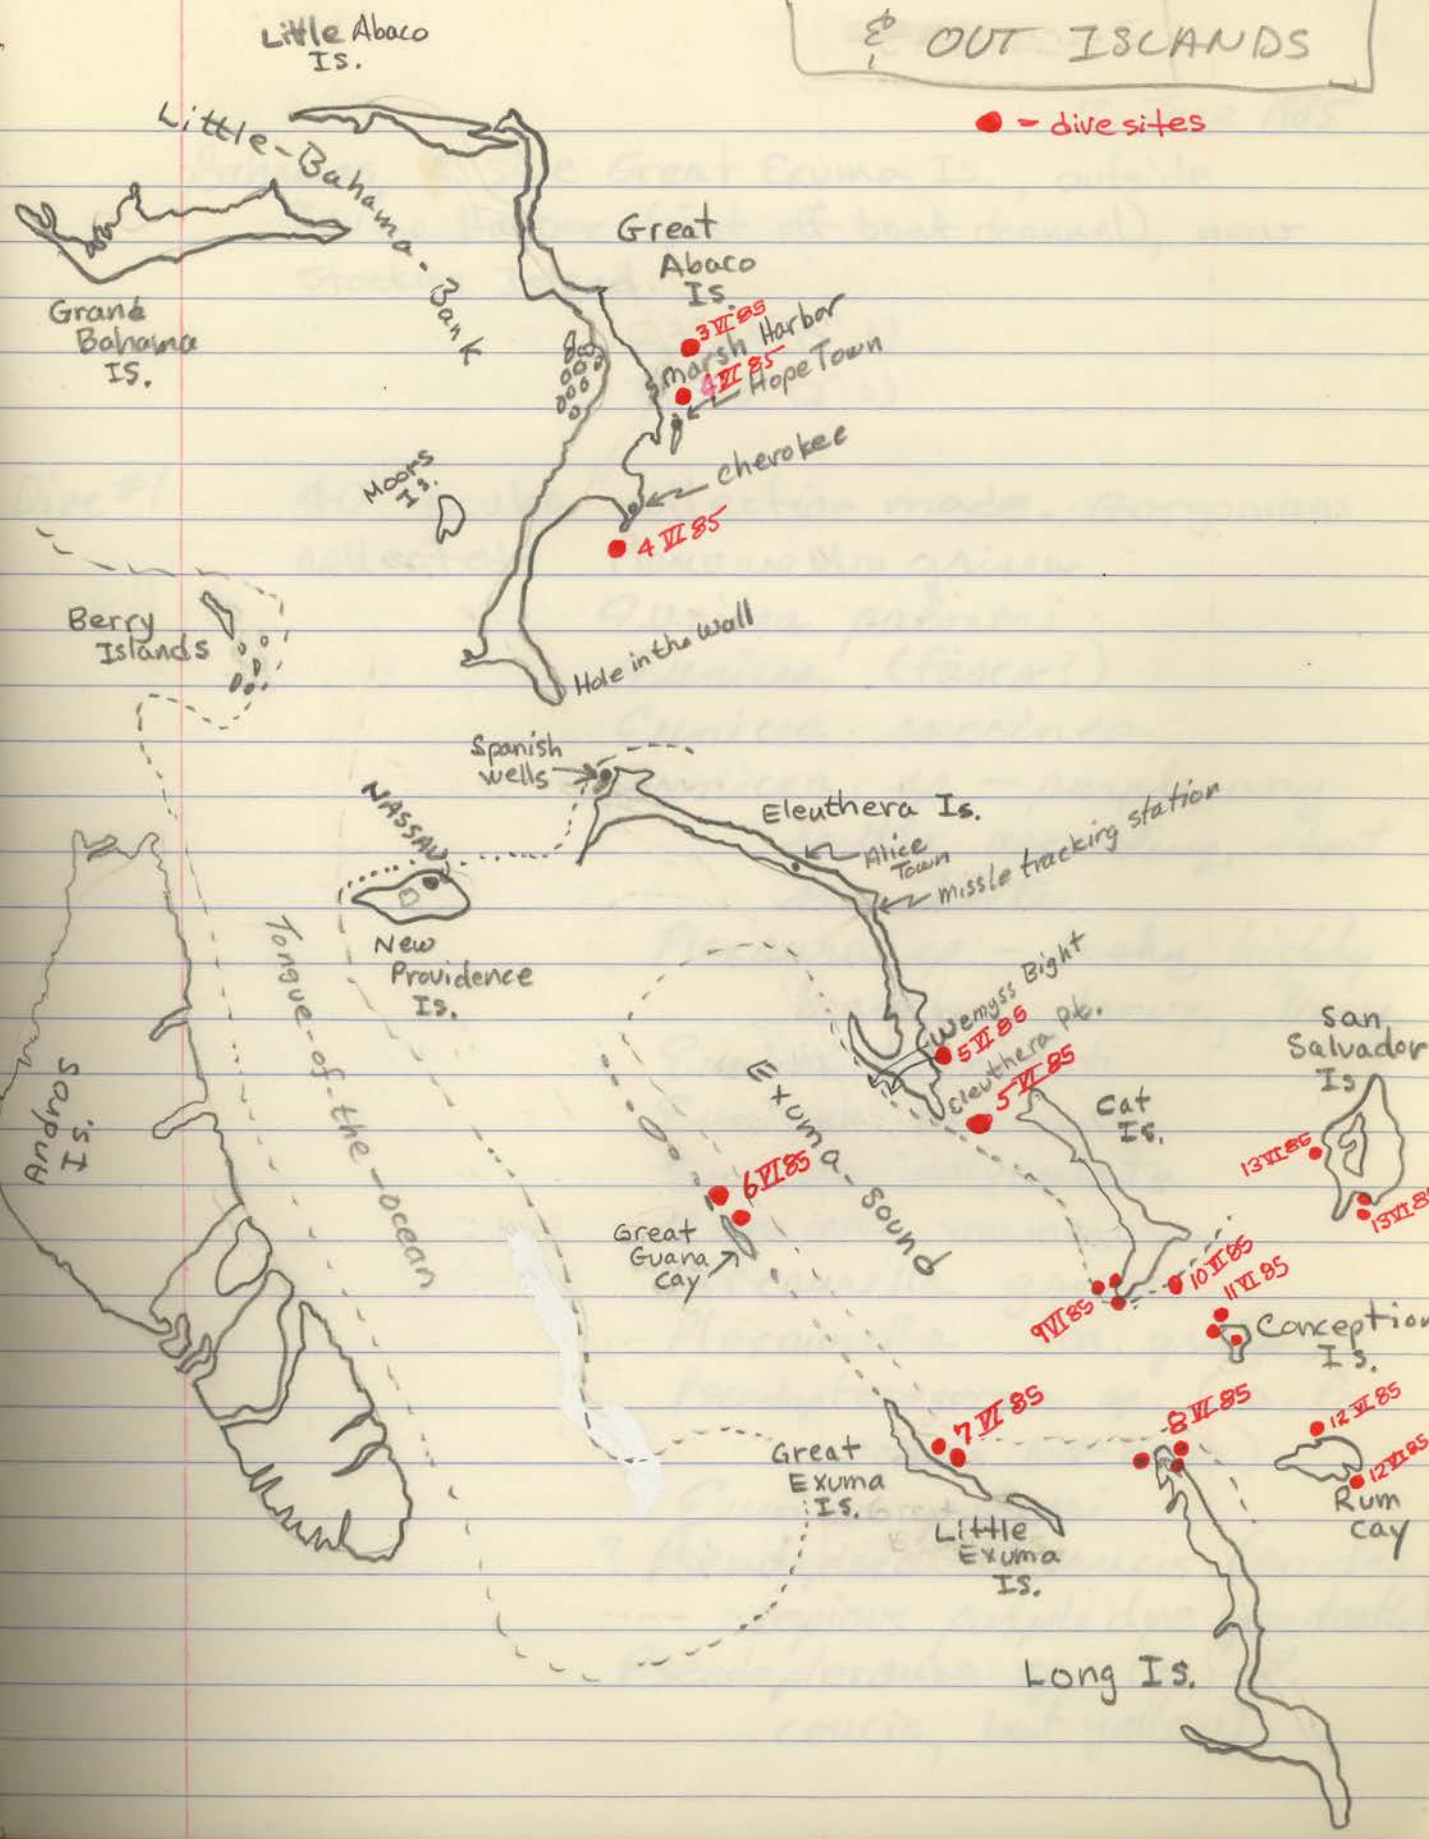 & OUT ISLANDS
- dive sites
Little Abaco
Is.
Little-Bahama-Bank
Grand
Bahama
IS.
Great
Abaco
Is.
3 VI 85
Marsh Harbor
4 VI 85
Hope Town
cherokee
4 VI 85
Moors
Is.
Berry
Islands
Hole in the Wall
Spanish
wells
NASSAU
Eleuthera Is.
Alice
Town
missle tracking station
New
Providence
Is.
Tongue-of-the-ocean
Andros
Is.
Wemyss Bight
5 VI 85
Eleuthera pt.
5 VI 85
Exuma-sound
Cat
Is.
San
Salvador
Is
13 VI 85
13 VI 8
6 VI 85
Great
Guana
Cay
10 VI 85
11 VI 85
9 VI 85
Conception
Is.
7 VI 85
8 VI 85
12 VI 85
12 VI 85
Rum
Cay
Great
Exuma
IS.
Little
Exuma
IS.
Long Is.